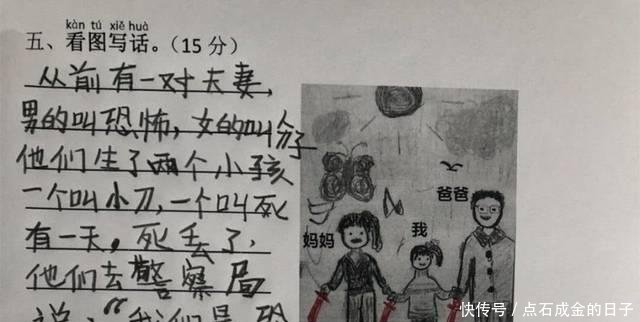 kàn tú xiě huà
五、看图写话。(15分)
从前有一对夫妻，
男的叫恐怖，女的叫分子
他们生了两个小孩
一个叫小刀，一个叫死
有一天，死丢了，
他们去警察局
说："我们是恐
妈妈
我
爸爸
快传号/点石成金的日子